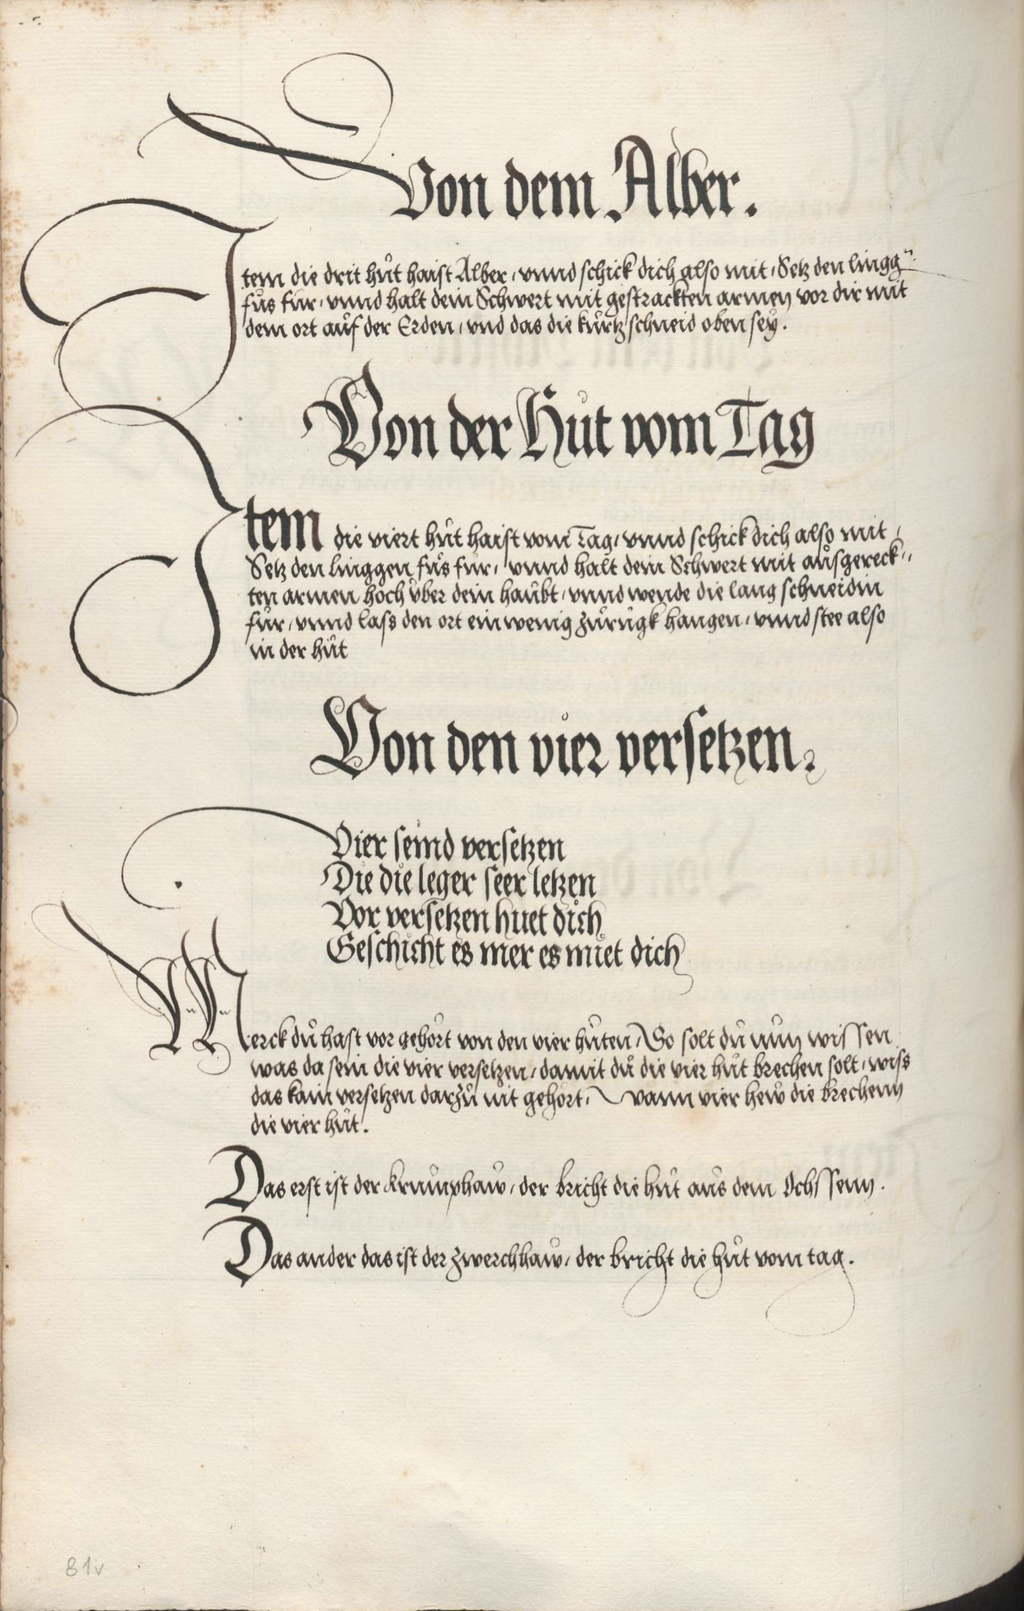 Von dem Alber.
Item die drit hůt haist Alber, vnnd schick dich also mit, Setz den lingg
fůs für, vnnd halt dein Schwert mit gestrackten armen vor dir mit
dem ort auf der Erden, vnd das die kürtz schneid oben sey.
Von der Hůt vom Tag
Item die viert hůt haist vom Tag, vnnd schick dich also mit,
Setz den linggen fůs für, vnnd halt dein Schwert mit ausgereck„
ten armen hoch über dein haubt, vnnd wende die lang schneidin
für, vnnd lass den ort ein wenig zůrugk hangen, vnnd stee also
in der hůt
Von den vier versetzen.
Vier seind versetzen
Die die leger seer letzen
Vor versetzen huet dich
Geschicht es mer es müet dich
Merck dů hast vor gehört von den vier hůten, So solt dů nun wissen
was da sein die vier versetzen, damit dů die vier hůt brechen solt, wiss
das kain versetzen darzů nit gehört, wann vier hew die brechenn
die vier hůt.
Das erst ist der krumphaw, der bricht die hůt aus dem Ochssenn.
Das ander das ist der zwerchhaw, der bricht die hůt vom tag.
81v